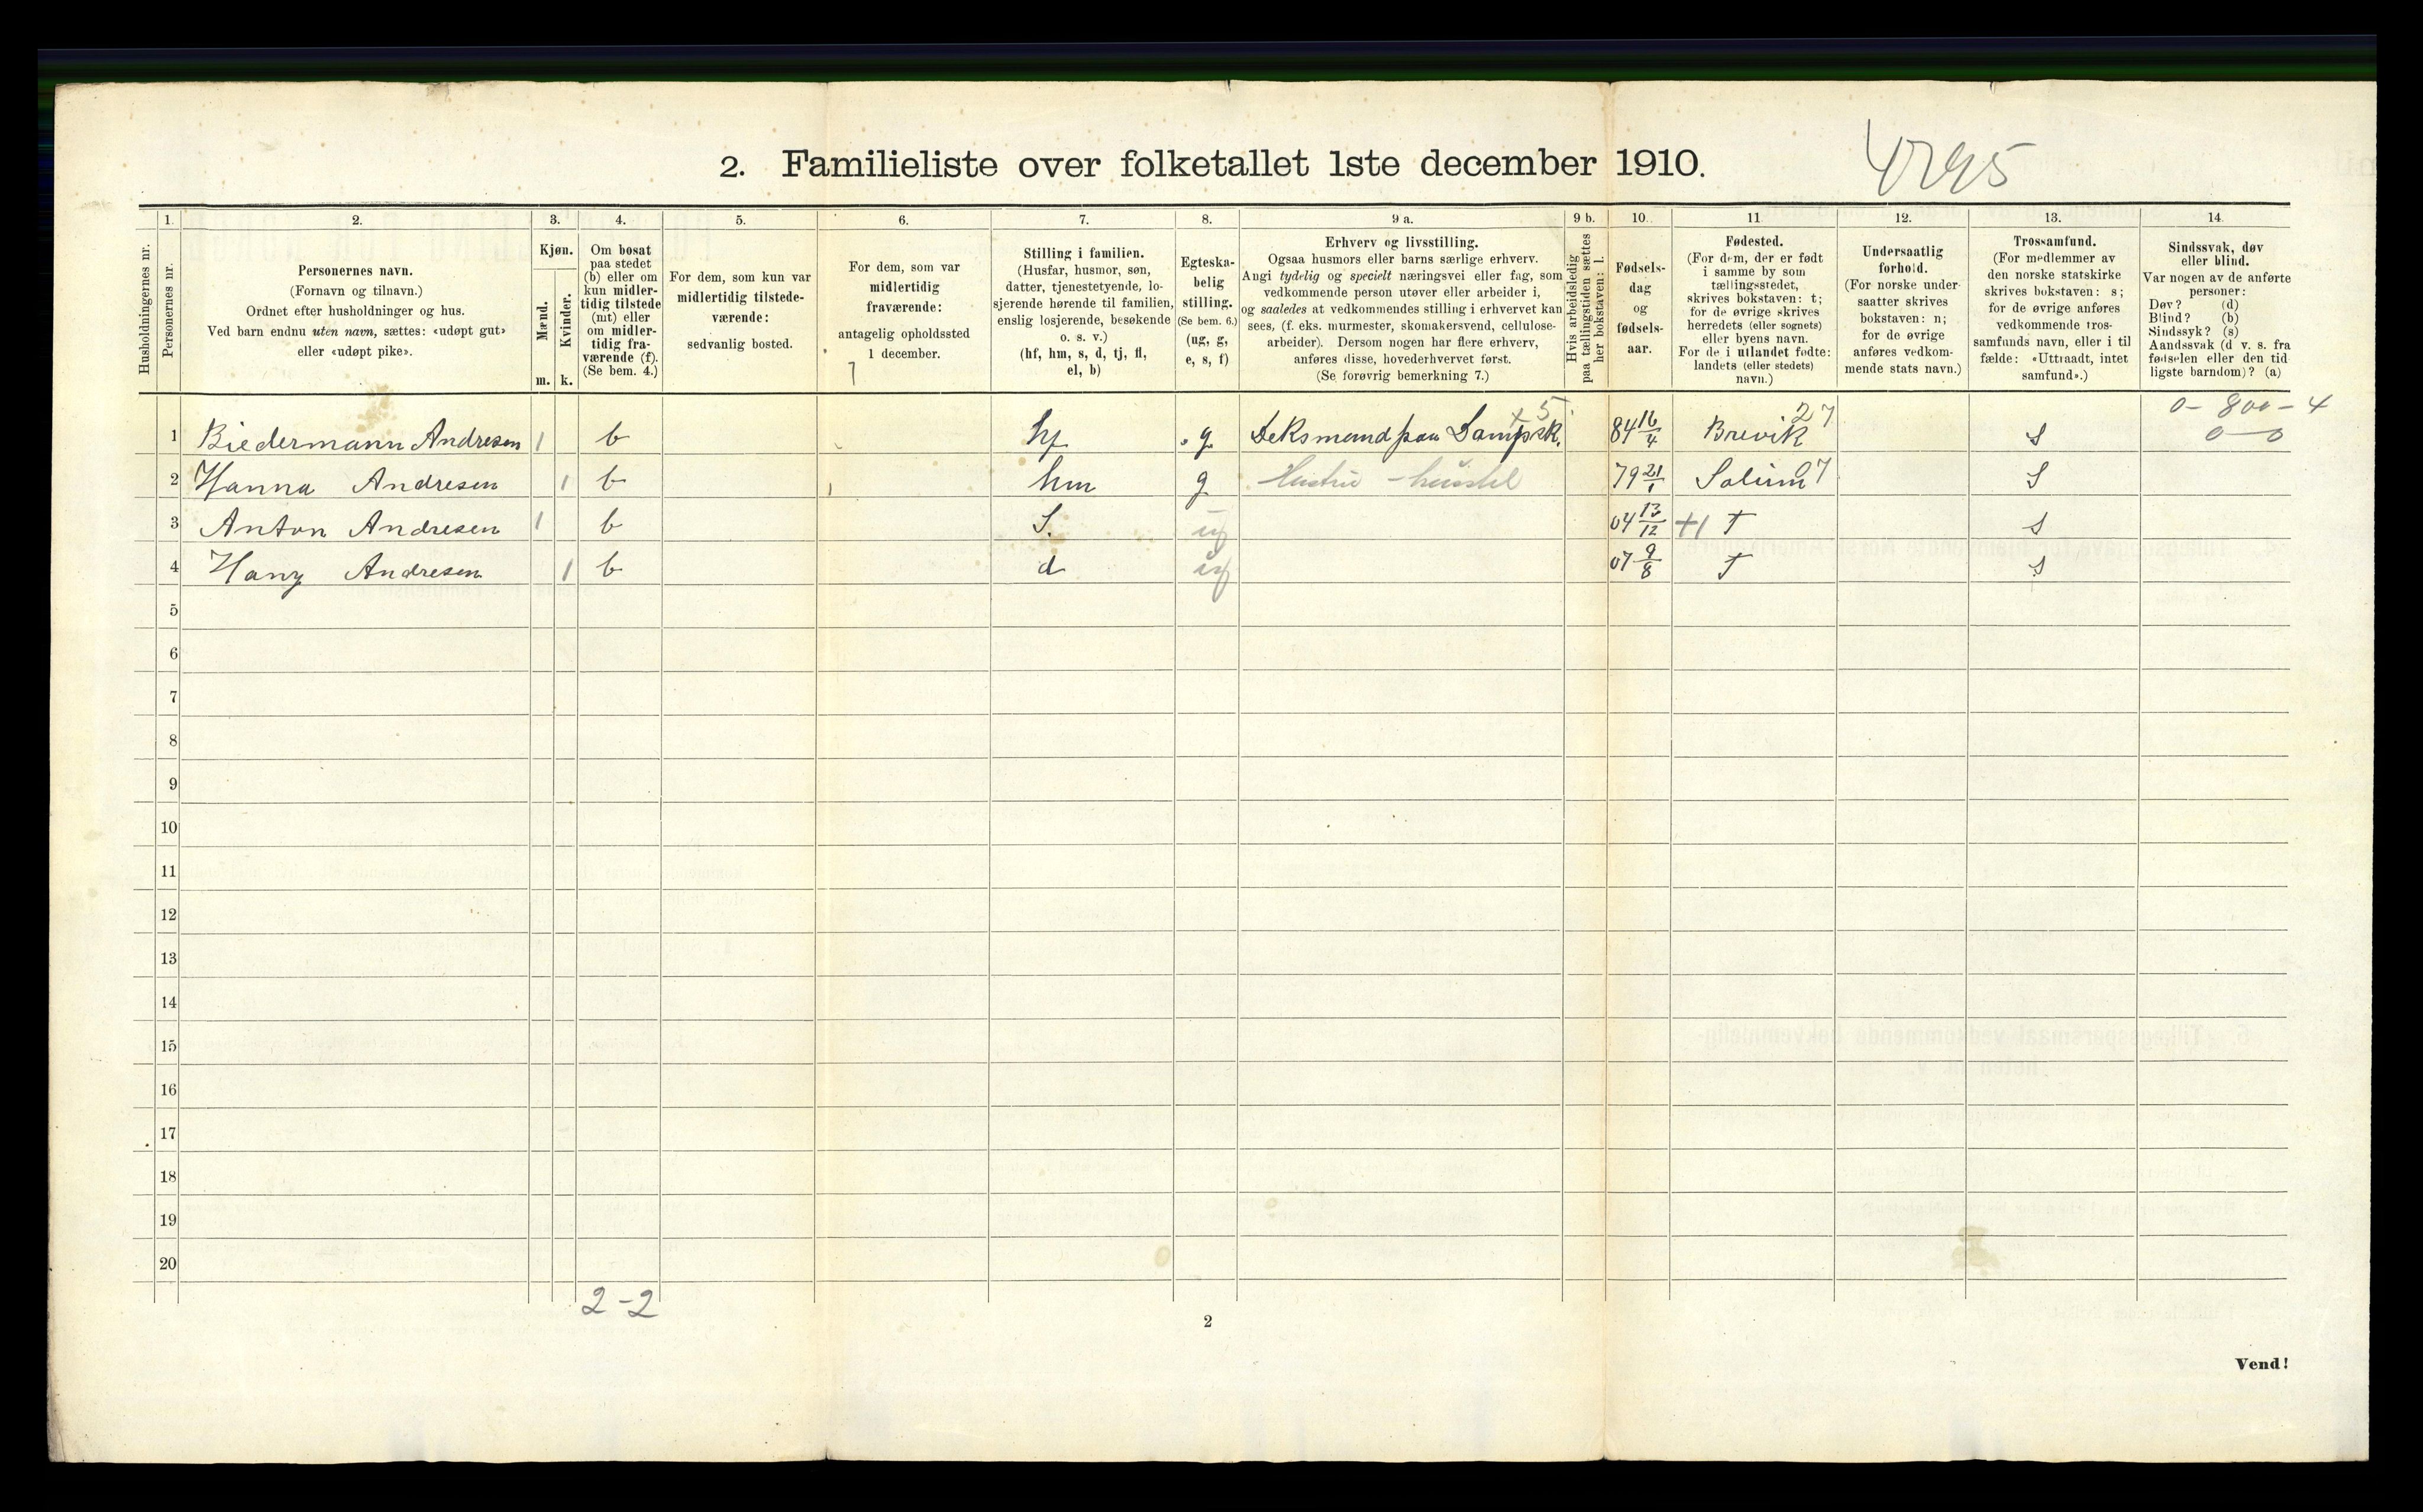 4795
2. Familieliste over folketallet 1ste december 1910.
1. 2. 3. 4. 5. 6. 7. 8. 9 a. 9 b. 10. 11 12. 13. 14
Husholdningernes nr.
Personernes nr.
Personernes navn.
(Fornavn og tilnavn.)
Ordnet efter husholdninger og hus.
Ved barn endnu uten navn, sættes: «udøpt gut»
eller «udøpt pike».
Kjøn.
Mænd.
Kvinder.
m. k.
Om bosat
paa stedet
(b) eller om
kun midler-
tidig tilstede
(mt) eller
om midler-
tidig fra-
værende (f).
(Se bem. 4.)
For dem, som kun var
midlertidig tilstede-
værende:
sedvanlig bosted.
For dem, som var
midlertidig
fraværende:
antagelig opholdssted
1 december.
Stilling i familien.
(Husfar, husmor, søn,
datter, tjenestetyende, lo-
sjerende hørende til familien,
enslig losjerende, besøkende
o. s. v.)
(hf, hm, s, d, tj, fl,
el, b)
Egteska-
belig
stilling.
(Se bem. 6.)
(ug, g,
e, s, f)
Erhverv og livsstilling.
Ogsaa husmors eller barns særlige erhverv.
Angi tydelig og specielt næringsvei eller fag, som
vedkommende person utøver eller arbeider i,
og saaledes at vedkommendes stilling i erhvervet kan
sees, (f. eks. murmester, skomakersvend, cellulose-
arbeider). Dersom nogen har flere erhverv,
anføres disse, hovederhvervet først.
(Se forøvrig bemerkning 7.)
Hvis arbeidsledig
paa tællingstiden sættes
her bokstaven: l.
Fødsels-
dag
og
fødsels-
aar.
Fødested.
(For dem, der er født
i samme by som
tællingsstedet,
skrives bokstaven: t;
for de øvrige skrives
herredets (eller sognets)
eller byens navn.
For de i utlandet fødte:
landets (eller stedets)
navn.)
Undersaatlig
forhold.
(For norske under-
saatter skrives
bokstaven: n;
for de øvrige
anføres vedkom-
mende stats navn.)
Trossamfund.
(For medlemmer av
den norske statskirke
skrives bokstaven: s;
for de øvrige anføres
vedkommende tros-
samfunds navn, eller i til-
fælde: «Uttraadt, intet
samfund».)
Sindssvak, døv
eller blind.
Var nogen av de anførte
personer:
Døv? (d)
Blind? (b)
Sindssyk? (s)
Aandssvak (d v. s. fra
fødselen eller den tid-
ligste barndom)? (a)
x 5. 27 0-800-4
1 Biedermann Andresen 1 b hf g Deksmand paa Dampsk. 84 16/4 Brevik s 0-0
2 Hanna Andresen 1 b hm g Hustru - husstel 79 21/1 Solum 27 s
3 Anton Andresen 1 b S. ug 04 13/12 +1 T s
4 Hany Andresen 1 b d ug 07 9/8 T s
5
6
7
8
9
10
11
12
13
14
15
16
17
18
19
20
2-2
2
Vend!